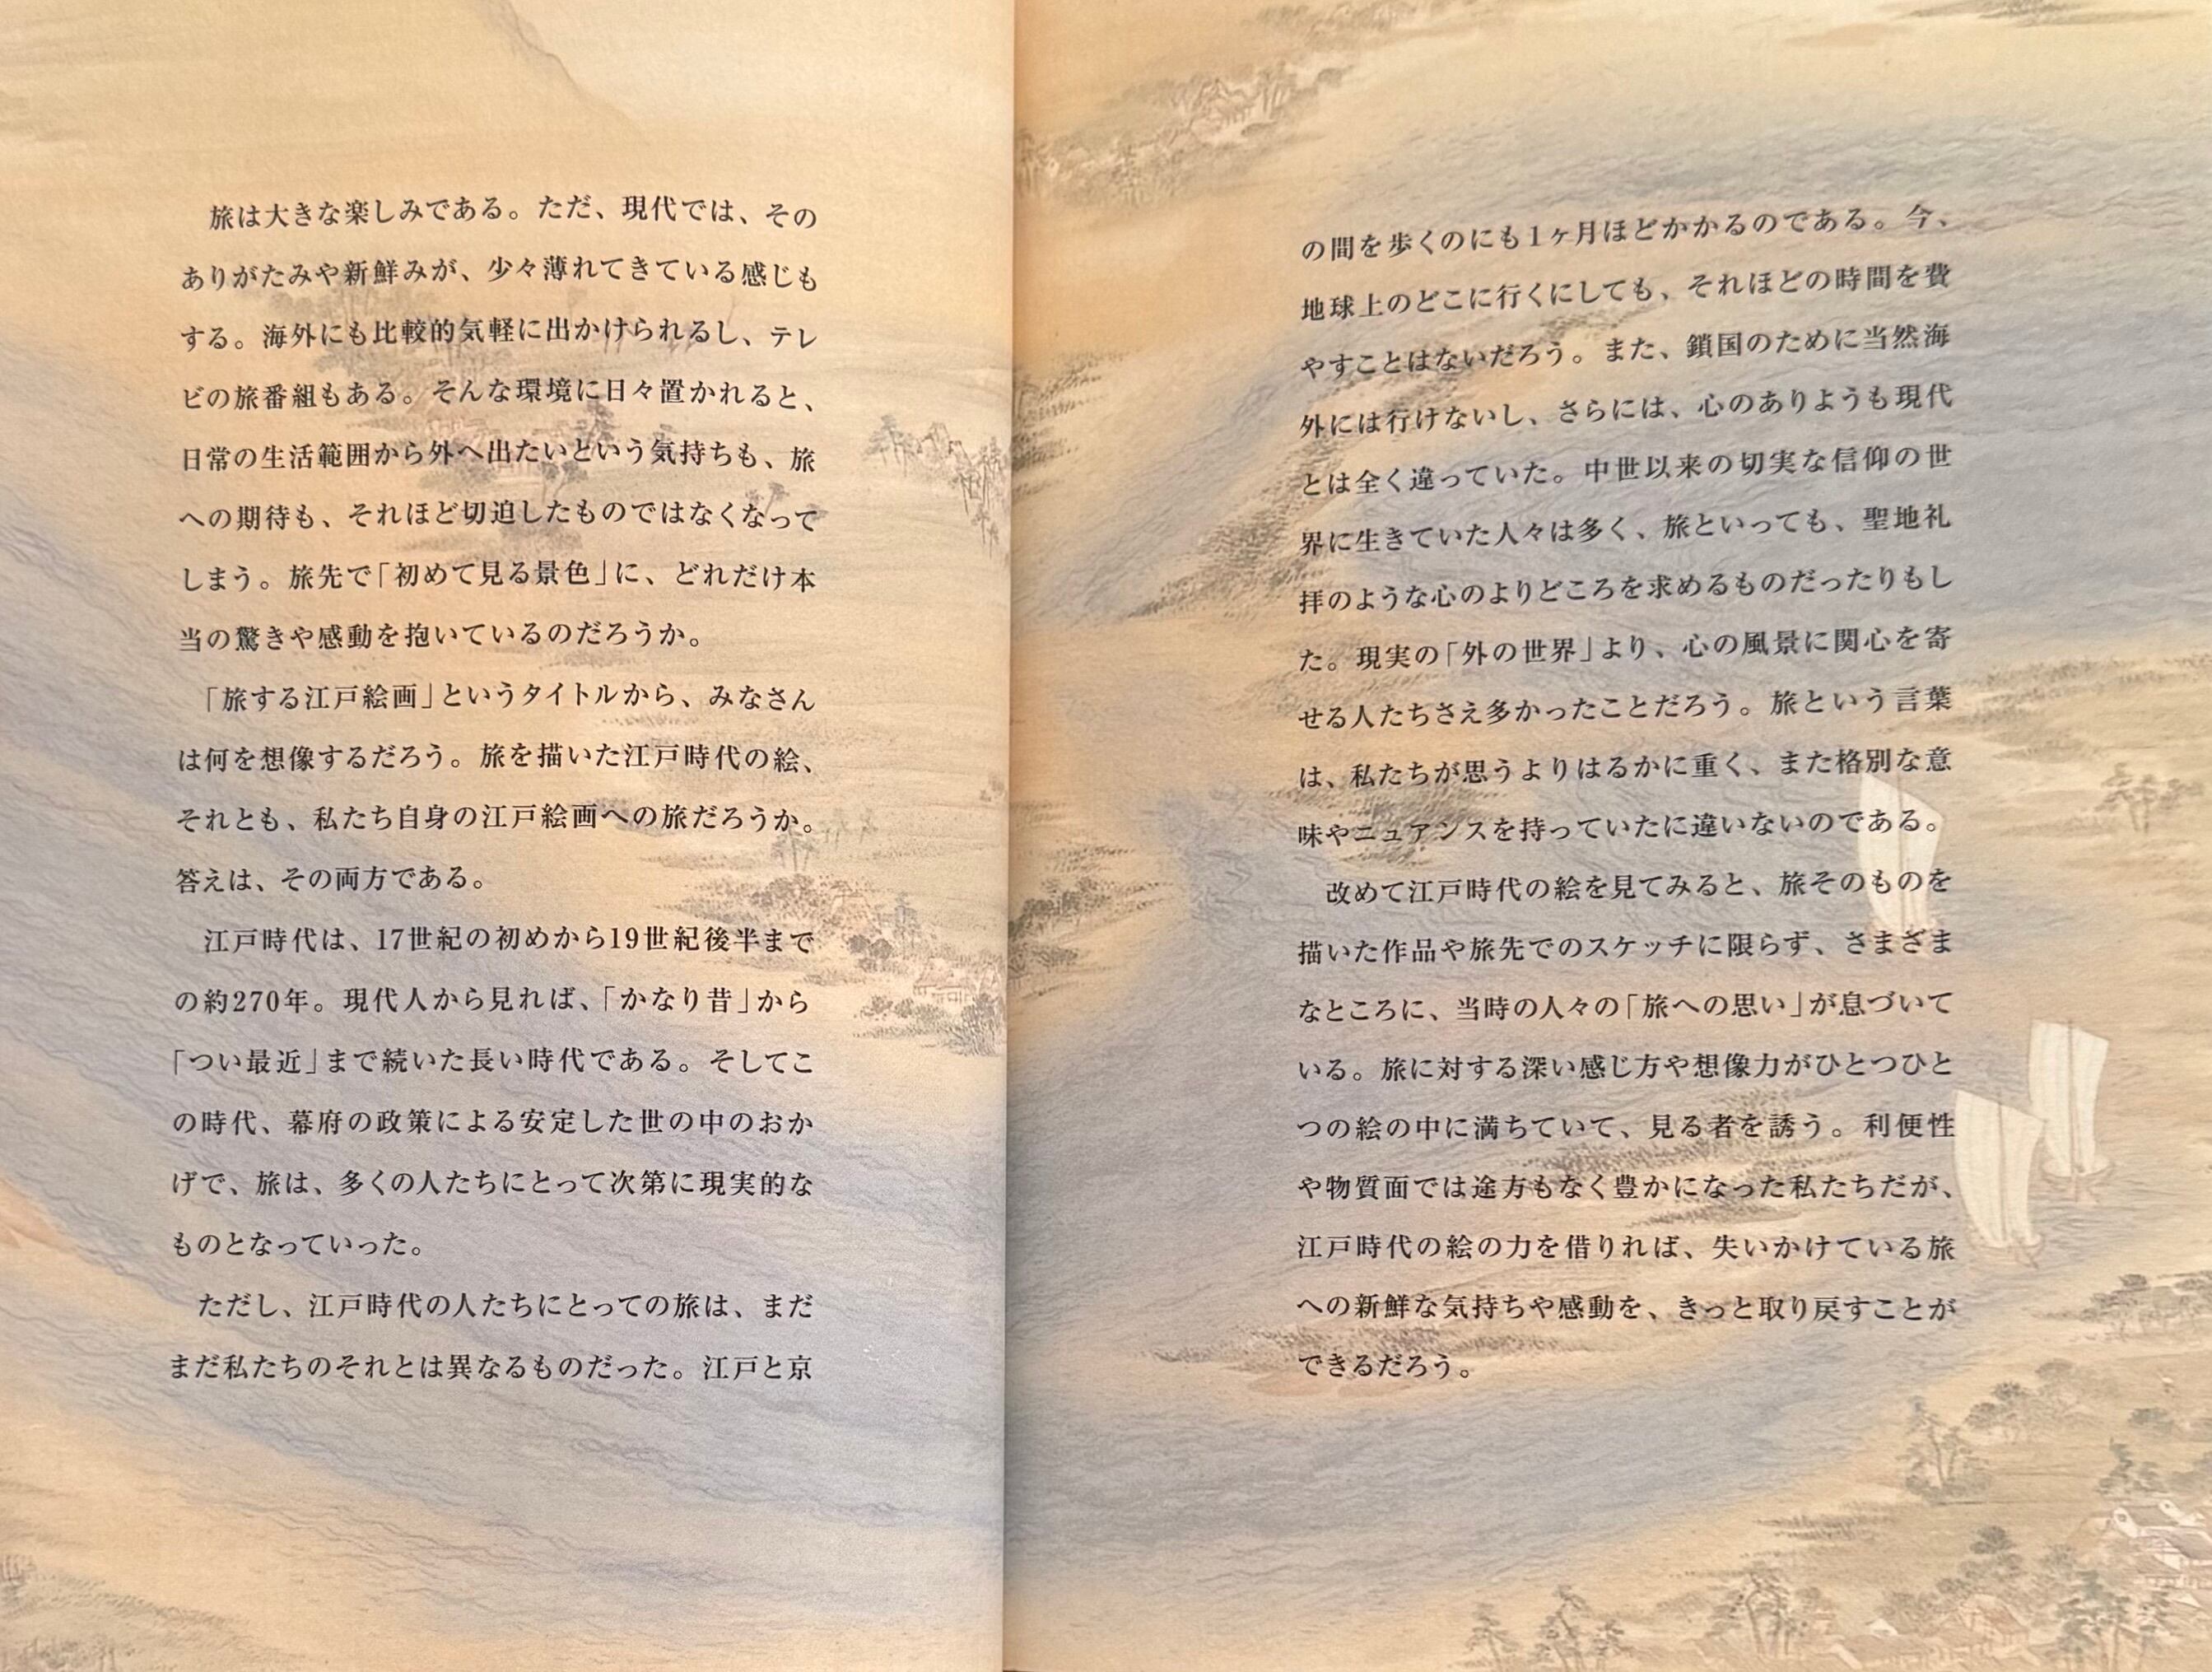 旅は大きな楽しみである。ただ、現代では、その
ありがたみや新鮮みが、少々薄れてきている感じも
する。海外にも比較的気軽に出かけられるし、テレ
ビの旅番組もある。そんな環境に日々置かれると、
日常の生活範囲から外へ出たいという気持ちも、旅
への期待も、それほど切迫したものではなくなって
しまう。旅先で「初めて見る景色」に、どれだけ本
当の驚きや感動を抱いているのだろうか。
「旅する江戸絵画」というタイトルから、みなさん
は何を想像するだろう。旅を描いた江戸時代の絵、
それとも、私たち自身の江戸絵画への旅だろうか。
答えは、その両方である。
江戸時代は、17世紀の初めから19世紀後半まで
の約270年。現代人から見れば、「かなり昔」から
「つい最近」まで続いた長い時代である。そしてこ
の時代、幕府の政策による安定した世の中のおか
げで、旅は、多くの人たちにとって次第に現実的な
ものとなっていった。
ただし、江戸時代の人たちにとっての旅は、まだ
まだ私たちのそれとは異なるものだった。江戸と京
の間を歩くのにも1ヶ月ほどかかるのである。今、
地球上のどこに行くにしても、それほどの時間を費
やすことはないだろう。また、鎖国のために当然海
外には行けないし、さらには、心のありようも現代
とは全く違っていた。中世以来の切実な信仰の世
界に生きていた人々は多く、旅といっても、聖地礼
拝のような心のよりどころを求めるものだったりもし
た。現実の「外の世界」より、心の風景に関心を寄
せる人たちさえ多かったことだろう。旅という言葉
は、私たちが思うよりはるかに重く、また格別な意
味やニュアンスを持っていたに違いないのである。
改めて江戸時代の絵を見てみると、旅そのものを
描いた作品や旅先でのスケッチに限らず、さまざま
なところに、当時の人々の「旅への思い」が息づいて
いる。旅に対する深い感じ方や想像力がひとつひと
つの絵の中に満ちていて、見る者を誘う。利便性
や物質面では途方もなく豊かになった私たちだが、
江戸時代の絵の力を借りれば、失いかけている旅
への新鮮な気持ちや感動を、きっと取り戻すことが
できるだろう。